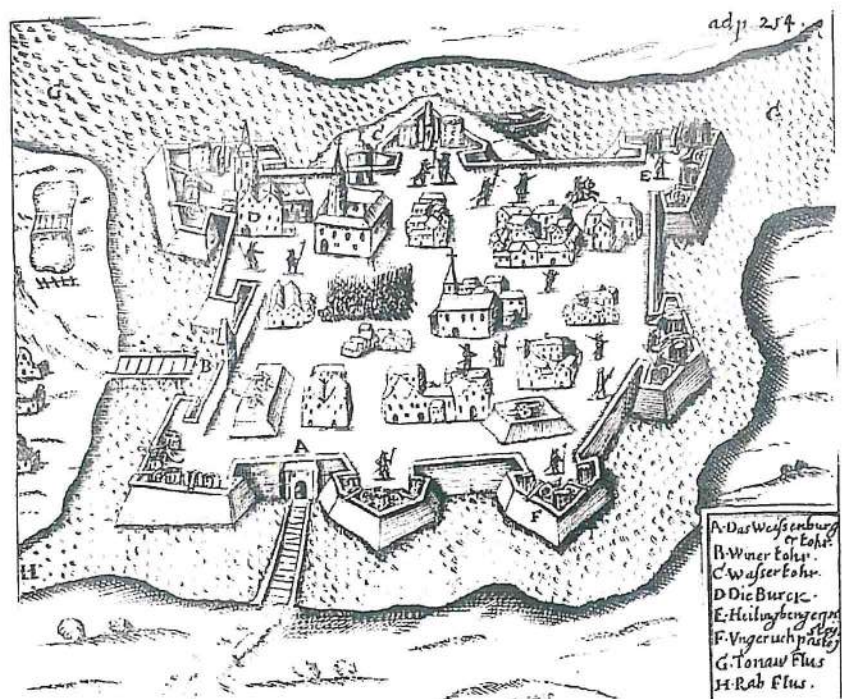 adp 254.
G
G
C
E
D
B
A
F
H
A. Das Weissenburg
er tohr.
B. Winer tohr.
C. Wasser tohr.
D Die Burck.
E. Heilingbenger
F. Ungerisch pastey
G. Tonaw Flus
H. Rab Flus.